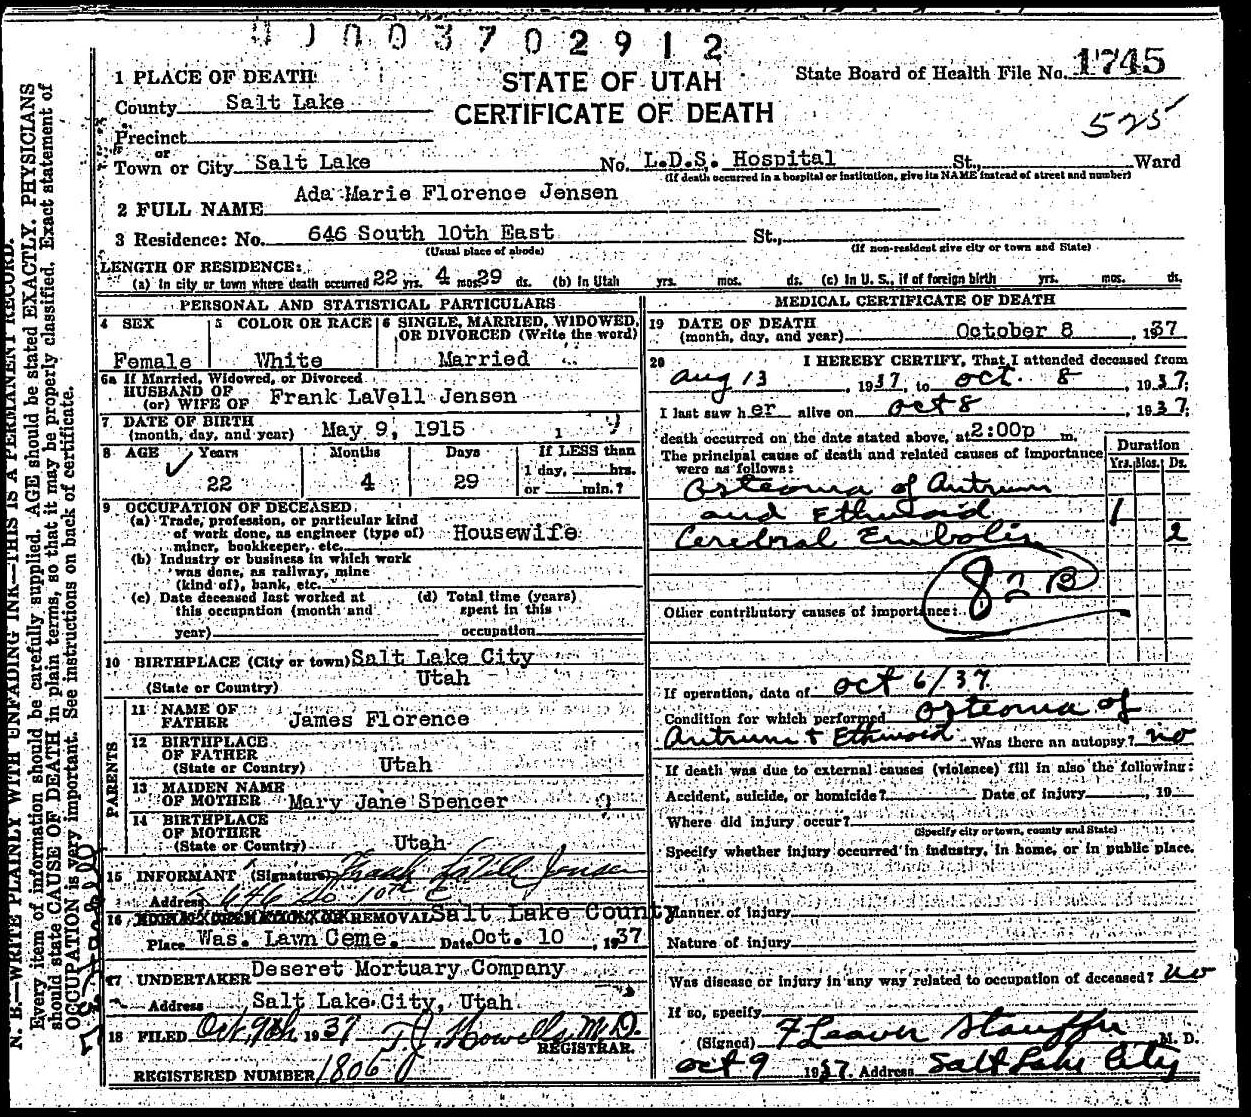 0003702912
1 PLACE OF DEATH
STATE OF UTAH
CERTIFICATE OF DEATH
State Board of Health File No. 1745
525
County Salt Lake
Precinct
or
Town or City Salt Lake No. L.D.S. Hospital St., Ward
(If death occurred in a hospital or institution, give its NAME instead of street and number)
2 FULL NAME Ada Marie Florence Jensen
3 Residence: No. 646 South 10th East St.,
(Usual place of abode) (If non-resident give city or town and State)
LENGTH OF RESIDENCE:
(a) In city or town where death occurred 22 yrs. 4 mos. 29 ds. (b) In Utah yrs. mos. ds. (c) In U. S., if of foreign birth yrs. mos. ds.
PERSONAL AND STATISTICAL PARTICULARS
4 SEX Female
5 COLOR OR RACE White
6 SINGLE, MARRIED, WIDOWED, OR DIVORCED (Write the word) Married
6a If Married, Widowed, or Divorced
HUSBAND OF
(or) WIFE OF Frank LaVell Jensen
7 DATE OF BIRTH
(month, day, and year) May 9, 1915
8 AGE Years Months Days If LESS than
1 day, hrs.
22 4 29 or min.?
9 OCCUPATION OF DECEASED
(a) Trade, profession, or particular kind
of work done, as engineer (type of) Housewife
miner, bookkeeper, etc.
(b) Industry or business in which work
was done, as railway, mine
(kind of), bank, etc.
(c) Date deceased last worked at (d) Total time (years)
this occupation (month and spent in this
year) occupation
10 BIRTHPLACE (City or town) Salt Lake City
Utah
(State or Country)
PARENTS
11 NAME OF
FATHER James Florence
12 BIRTHPLACE
OF FATHER
(State or Country) Utah
13 MAIDEN NAME
OF MOTHER Mary Jane Spencer
14 BIRTHPLACE
OF MOTHER
(State or Country) Utah
15 INFORMANT (Signature) Frank LaVell Jensen
Address 646 So 10th E
16 REMOVAL Salt Lake County
Place Was. Lawn Ceme. Date Oct. 10, 1937
17 UNDERTAKER Deseret Mortuary Company
Address Salt Lake City, Utah
18 FILED Oct, 9th 1937 T J. Howells M.D.
REGISTRAR.
REGISTERED NUMBER 1806
MEDICAL CERTIFICATE OF DEATH
19 DATE OF DEATH
(month, day, and year) October 8, 1937
20 I HEREBY CERTIFY, That I attended deceased from
Aug 13, 1937, to Oct. 8, 1937;
I last saw her alive on Oct 8, 1937;
death occurred on the date stated above, at 2:00p m.
The principal cause of death and related causes of importance
were as follows:
Duration
Yrs. Mos. Ds.
Osteoma of Antrum
and Ethmoid 1
Cerebral Embolis 2
82B
Other contributory causes of importance:
If operation, date of Oct 6/37
Condition for which performed Osteoma of
Antrum + Ethmoid Was there an autopsy? no
If death was due to external causes (violence) fill in also the following:
Accident, suicide, or homicide? Date of injury, 19
Where did injury occur?
(Specify city or town, county and State)
Specify whether injury occurred in industry, in home, or in public place.
Manner of injury
Nature of injury
Was disease or injury in any way related to occupation of deceased? no
If so, specify
(Signed) F Leaver Stauffer M. D.
Oct 9 1937. Address Salt Lake City
N. B.—WRITE PLAINLY WITH UNFADING INK—THIS IS A PERMANENT RECORD.
Every item of information should be carefully supplied. AGE should be stated EXACTLY. PHYSICIANS
should state CAUSE OF DEATH in plain terms, so that it may be properly classified. Exact statement of
OCCUPATION is very important. See instructions on back of certificate.